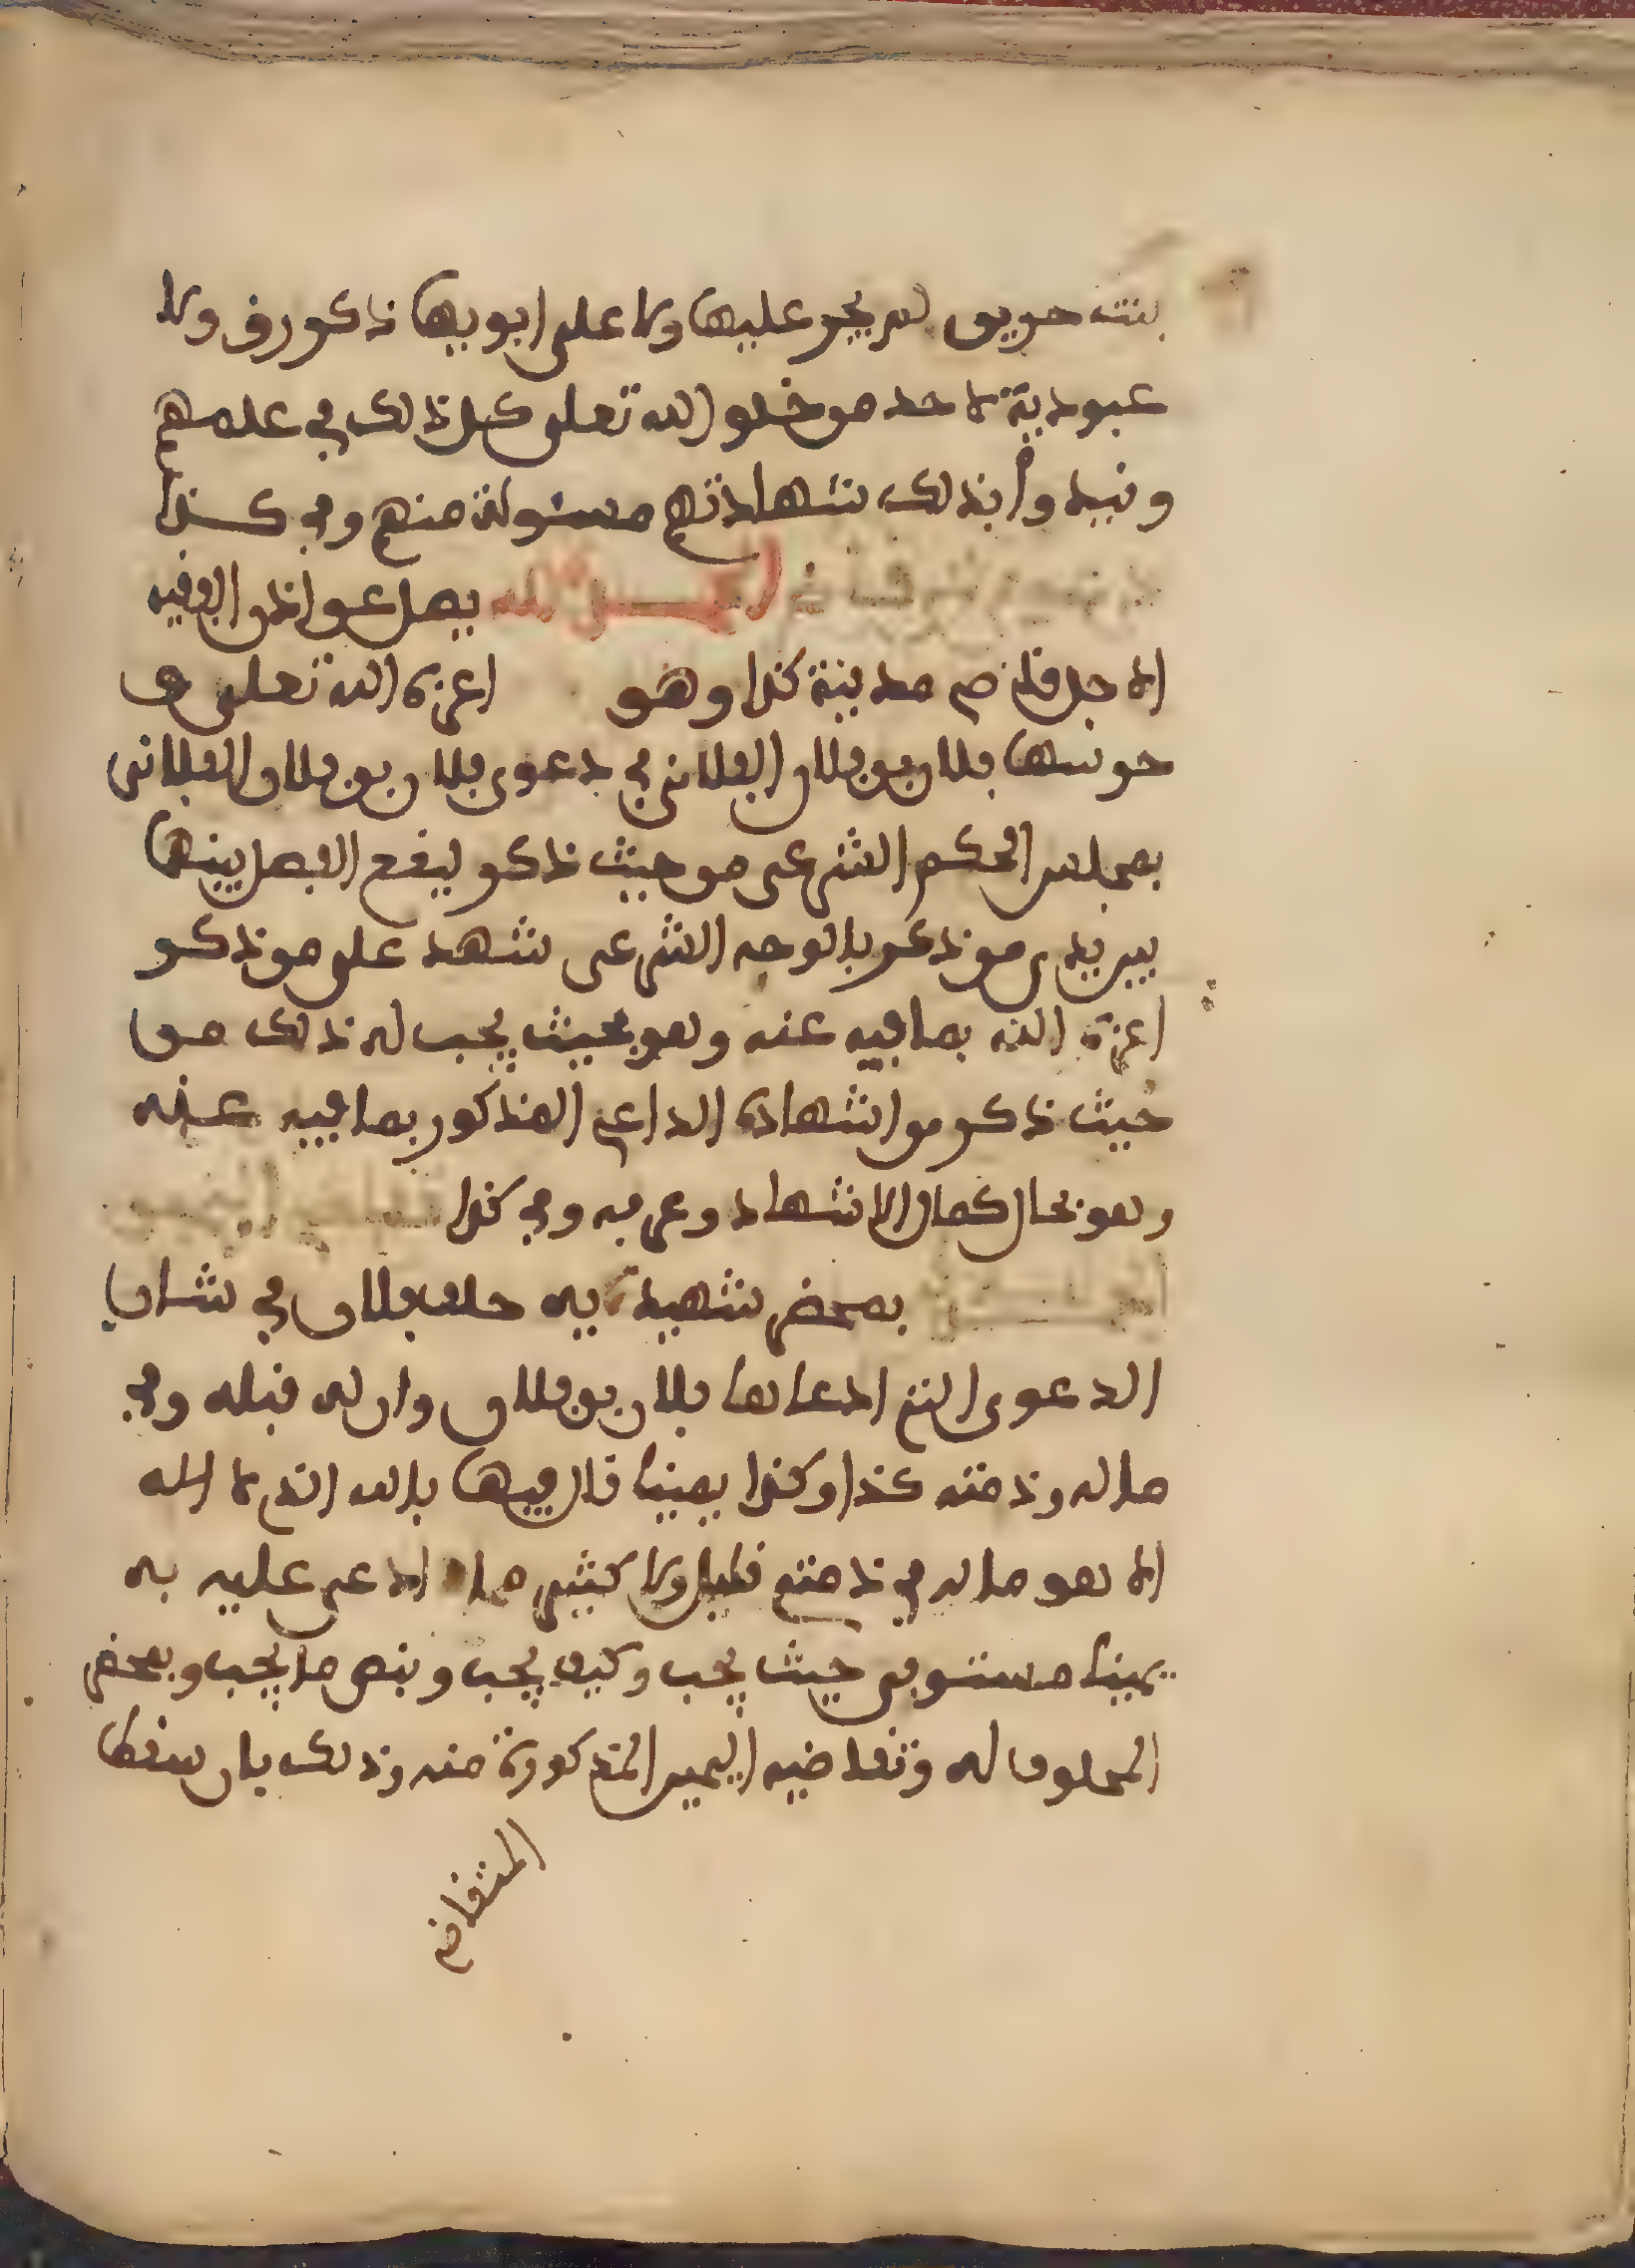 بنت حرين لم يجر عليها ولا على ابويها ذكور رق ولا
عبودية لاحد من خلق الله تعلى كل ذلك في علمهم
وقيدوا بذلك شهادتهم مسئولة منهم وفي كذا
الحمد لله يصل عن اذن الفقيه
الاجل قاضي مدينة كذا وهو اعزه الله تعلى و
حرسها فلان بن فلان الفلاني في دعوى فلان بن فلان الفلاني
بمجلس الحكم الشرعي من حيث ذكر ليقع الفصل بينهما
بين يدي من ذكر بالوجه الشرعي شهد على من ذكر
اعزه الله بما فيه عنه وهو بحيث يجب له ذلك من
حيث ذكر من اشهاده الداعي المذكور بما فيه عنه
وهو بحال كمال الاشهاد وعرفه وفي كذا تقاضي اليمين
الحمد لله بمحضر شهيديه حلف فلان في شان
الدعوى التي ادعاها فلان بن فلان وان له قبله وفي
ماله وذمته كذا وكذا يمينا قال فيها بالله الذي لا اله
الا هو ماله في ذمتي قليل ولا كثير مما ادعى عليه به
يمينا مستوفى حيث يجب وكيف يجب وبنص ما يجب وبمحضر
المحلوف له وتقاضيه اليمين المذكورة منه وذلك بان سقط
المتقاضي